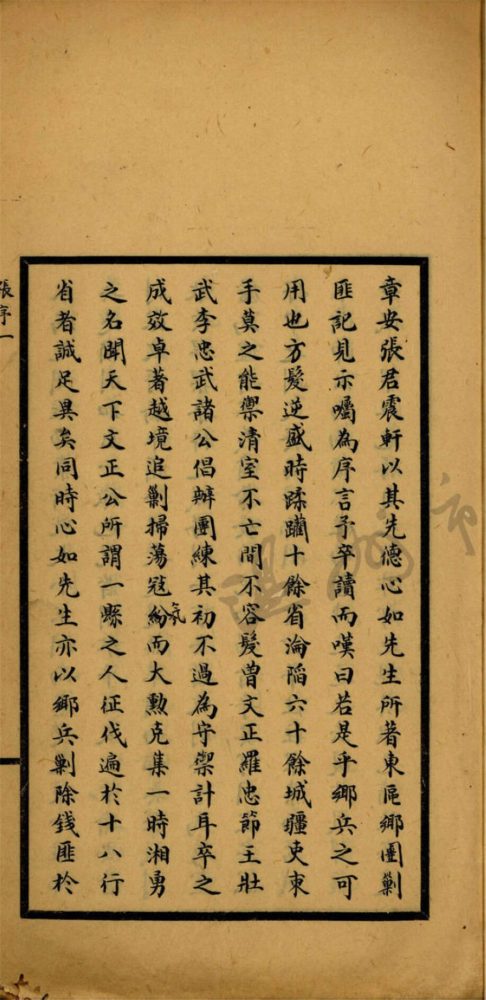 章安張君震軒以其先德心如先生所著東區鄉團剿
匪記見示囑為序言予卒讀而嘆曰若是乎鄉兵之可
用也方髮逆盛時蹂躪十餘省淪陷六十餘城疆吏束
手莫之能禦清室不亡間不容髮曾文正羅忠節王壯
武李忠武諸公倡辦團練其初不過為守禦計耳卒之
成效卓著越境追剿掃蕩寇紛氛而大勲克集一時湘勇
之名聞天下文正公所謂一縣之人征伐遍於十八行
省者誠足異矣同時心如先生亦以鄉兵剿除錢匪於
張序一